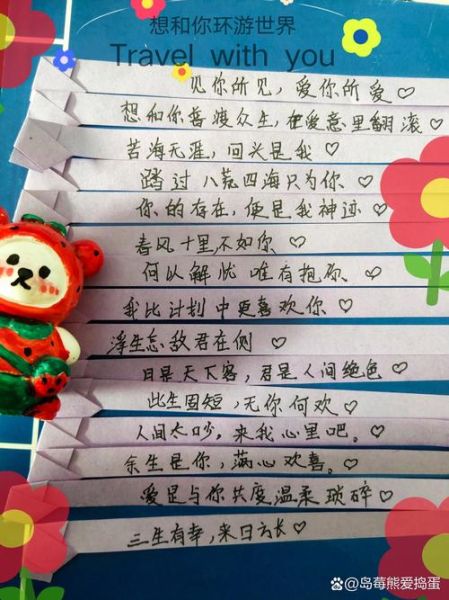 想和你环游世界
Travel with you
见你所见，爱你所爱♡
想和你普渡众生，在爱意里翻滚♡
苦海无涯，回头是我♡
踏过八荒四海只为你♡
你的存在，便是我神迹♡
春风十里，不如你♡
何以解忧 唯有抱你♡
我比计划中更喜欢你♡
浮生怎敌君在侧♡
月是天下客，君是人间绝色♡
此生固短，无你何欢♡
人间太吵，来我心里吧。♡
余生是你，满心欢喜。♡
爱是与你共度温柔琐碎♡
三生有幸，来日方长♡
@岛莓熊爱捣蛋